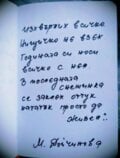 Изхвърлих всичко
Нищичко не взех
Годината си носи
всичко с нея.
В последната
снежинка
се закле оттук
нататък просто да
живея!
М.